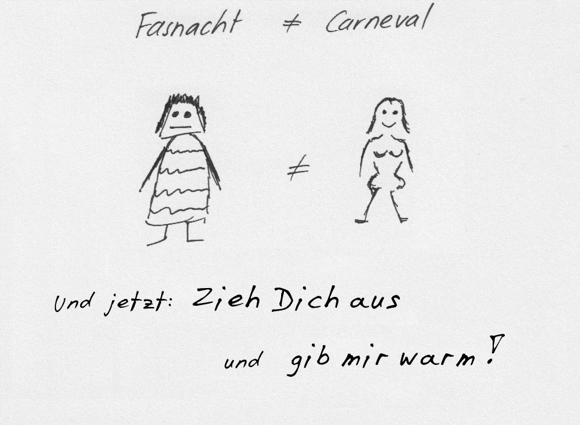 Fasnacht ≠ Carneval
≠
Und jetzt: Zieh Dich aus
und gib mir warm!